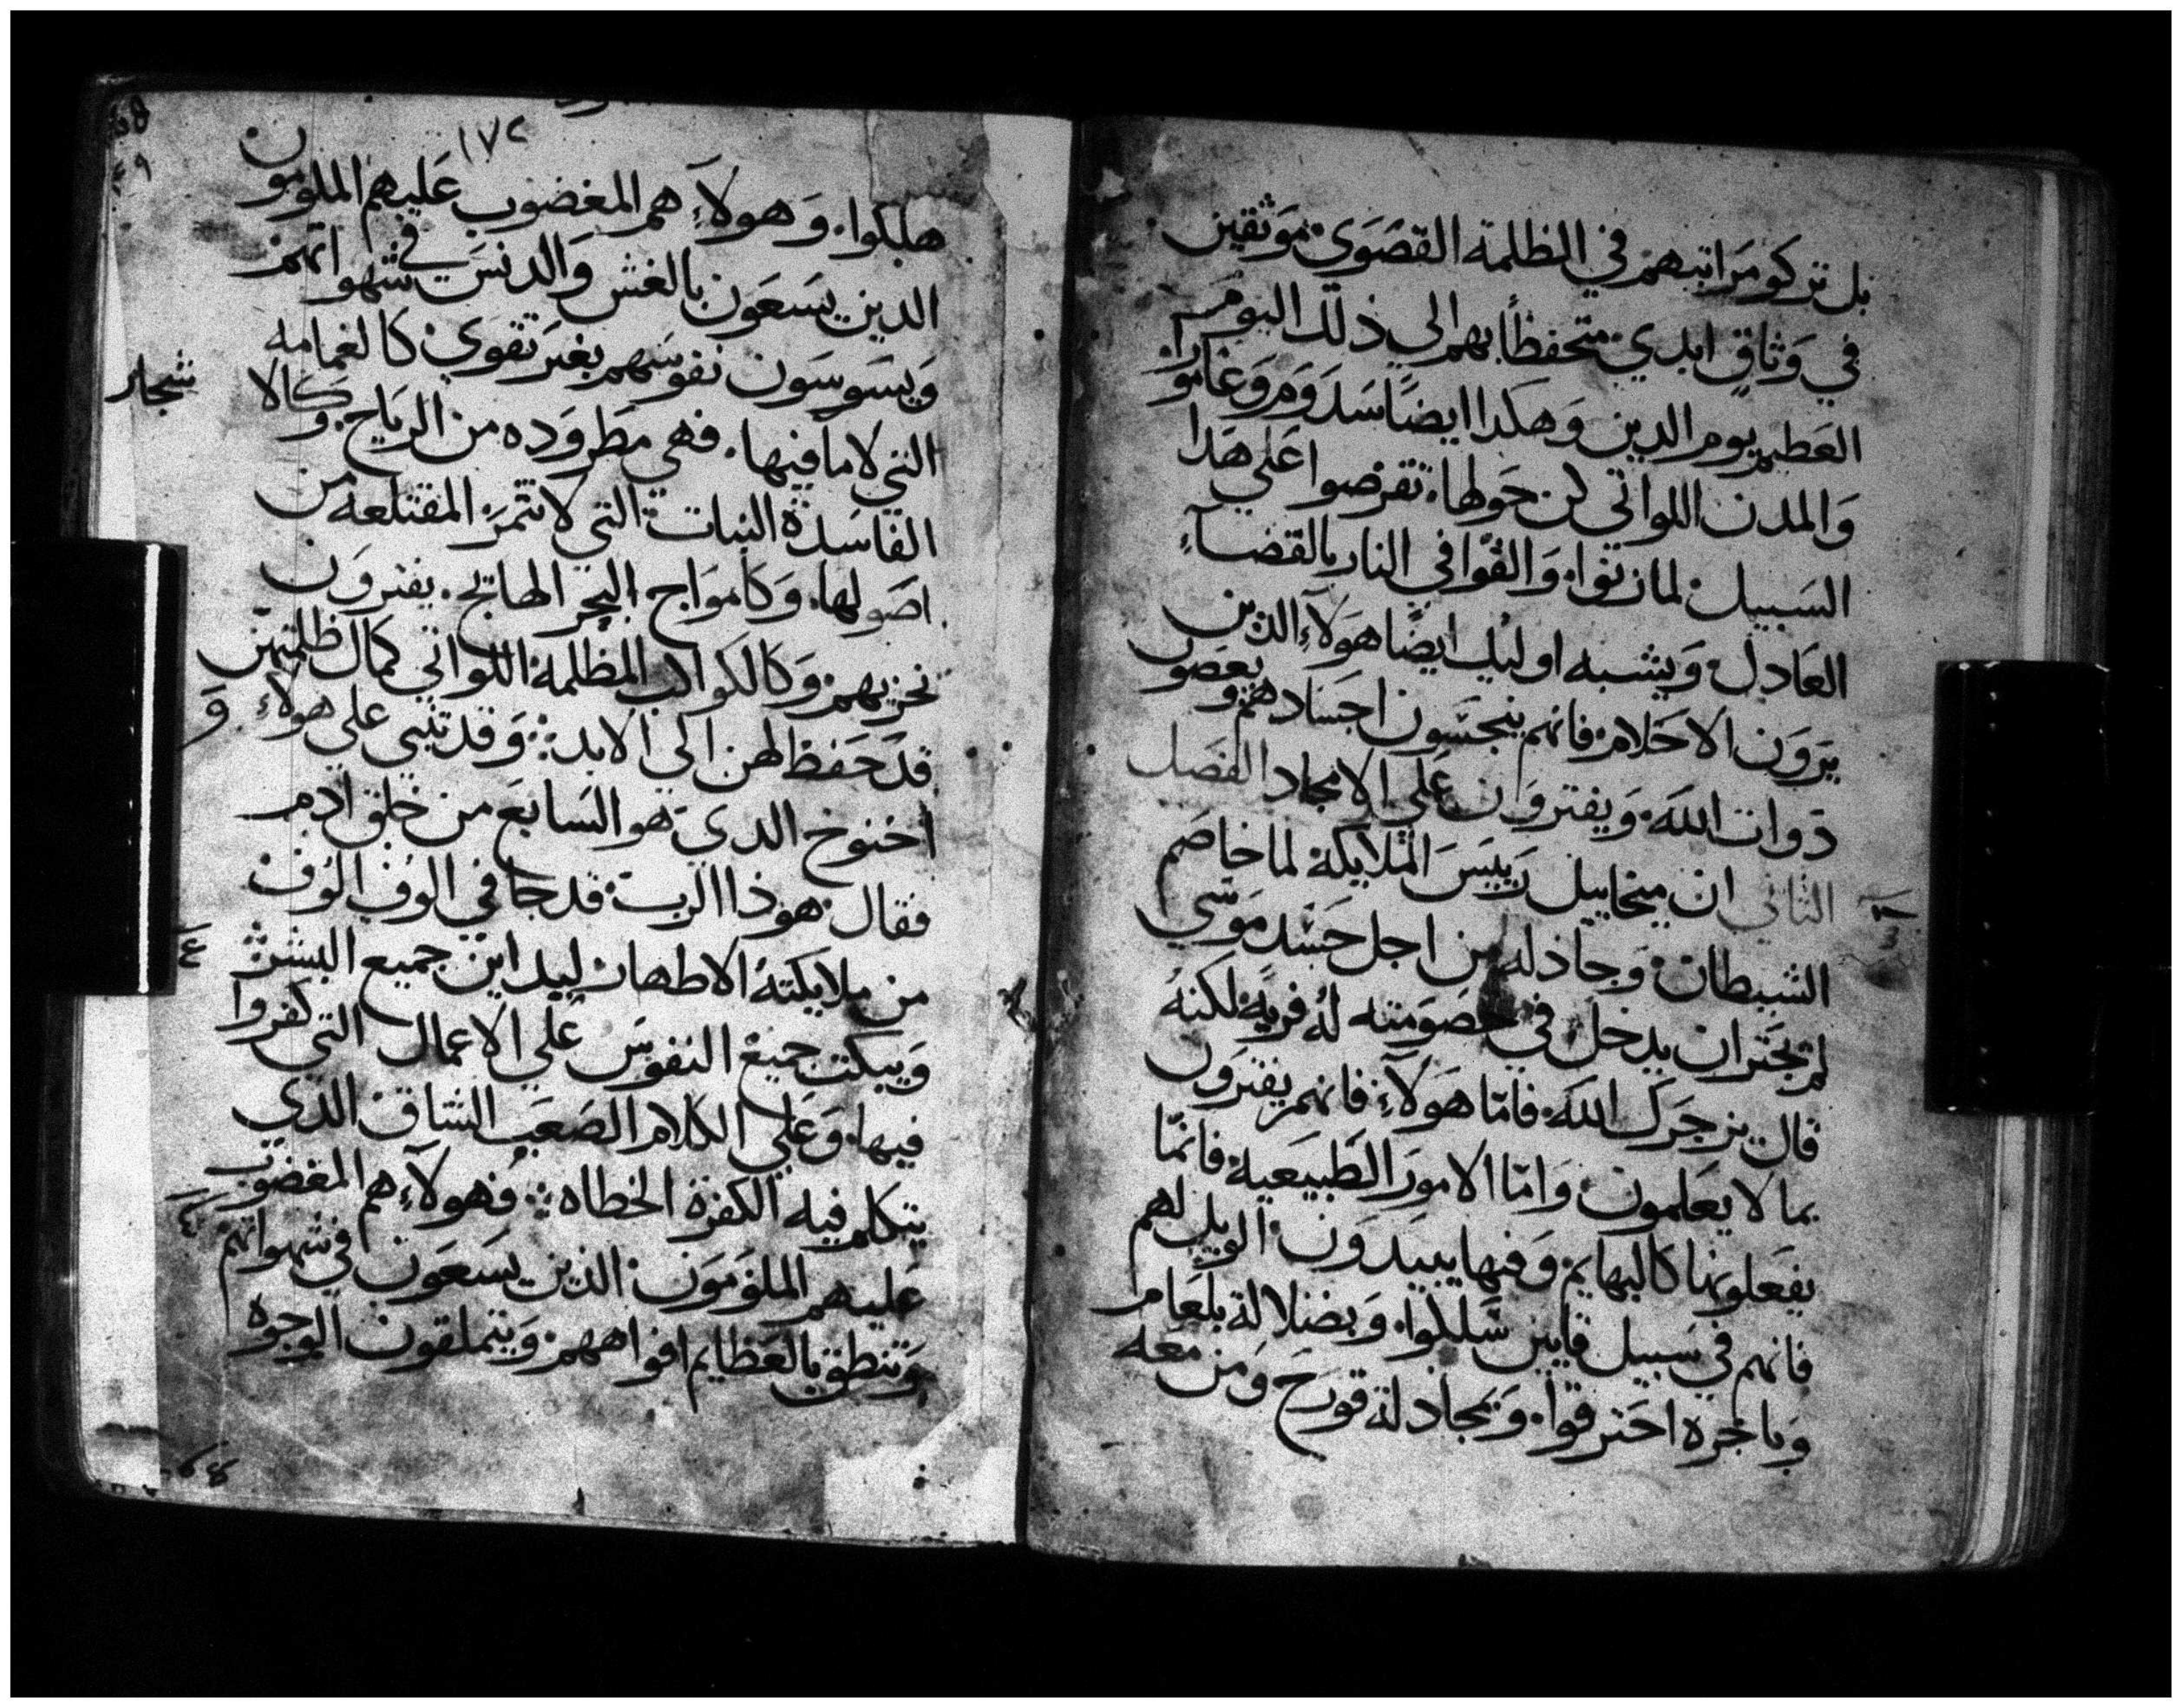 بل تركو مراتبهم في الظلمة القصوي موثقين
في وثاق ابدي متحفظاً بهم الي ذلك اليوم
العظيم يوم الدين وهكدا ايضاً سدوم وغامورا
والمدن اللواتي كن حولها تقرضوا علي هدا
السبيل لما زنوا والقوا في النار بالقضاء
العادل ويشبه اوليك ايضاً هولآء الذين
يرون الاحلام فانهم ينجسون اجسادهم ويعصون
دوات الله ويفترون علي الامجاد الفصل
الثاني ان ميخاييل رييس الملايكة لما خاصم
الشيطان وجادله من اجل جسد موسي
لم يجتر ان يدخل في خصومته له فرية لكنه
قال يزجرك الله فامّا هولآء فانهم يفترون
بما لا يعلمون وامّا الامور الطبيعية فانمّا
يفعلونها كالبهايم وفيها يبيدون الويل لهم
فانهم في سبيل قايين سلكوا وبضلالة بلعام
وباجره احترقوا وبمجادلة قورح ومن معه
١٧٢
هلكوا وهولآء هم المغضوب عليهم الملومون
الدين يسعون بالغش والدنس في شهواتهم
ويسوسون نفوسهم بغير تقوي كالغمامه
التي لا ما فيها فهي مطروده من الرياح وكالا
شجار
الفاسدة النبات التي لا تثمر المقتلعه من
اصولها وكامواج البحر الهايج يفترون
نحزيهم وكالكواكب المظلمة اللواتي كمال ظلمتهن
قد حفظ لهن الي الابد وقد تنبي علي هولآء و
اخنوخ الدي هو السابع من خلق ادم
فقال هوذا الرب قد جا في الوف الوف
من ملايكته الاطهار ليداين جميع البشر
ويبكت جميع النفوس علي الاعمال التي كفروا
فيها وعلي الكلام الصعب الشاق الذي
يتكلم فيه الكفرة الخطاه فهولآء هم المغضوب
عليهم الملومون الذين يسعون في شهواتهم
وتنطق بالعظايم افواههم ويتملقون الوجوه